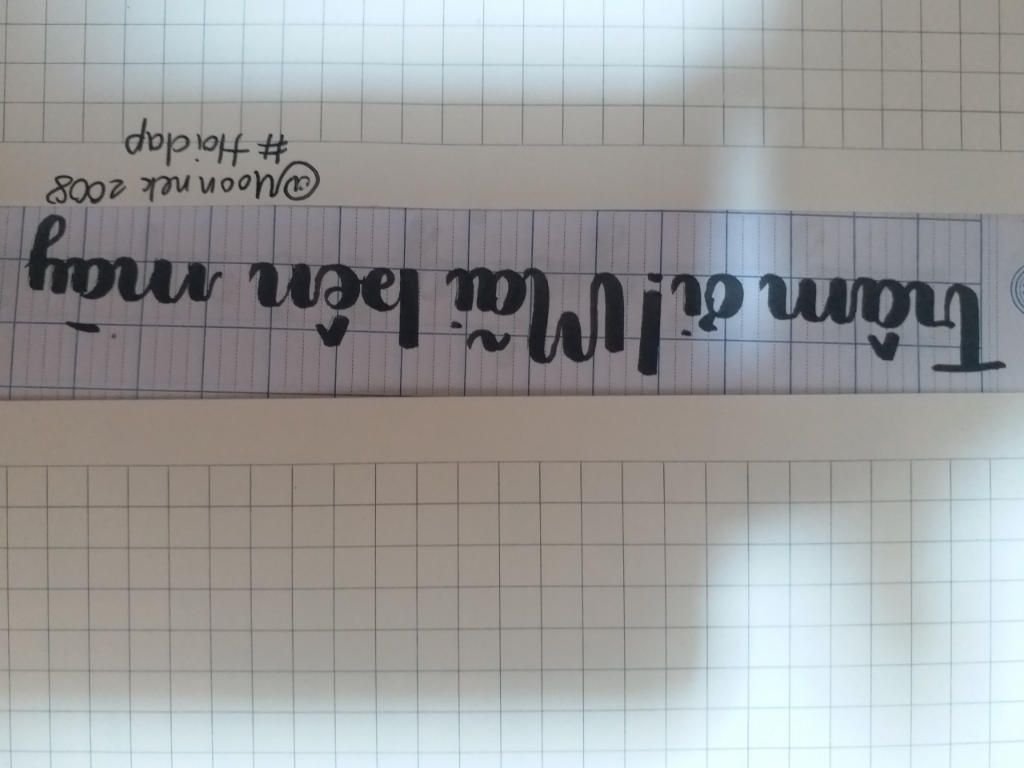 Trâm ơi! Mãi bên mày
@Moonnek 2008
# Hoidap